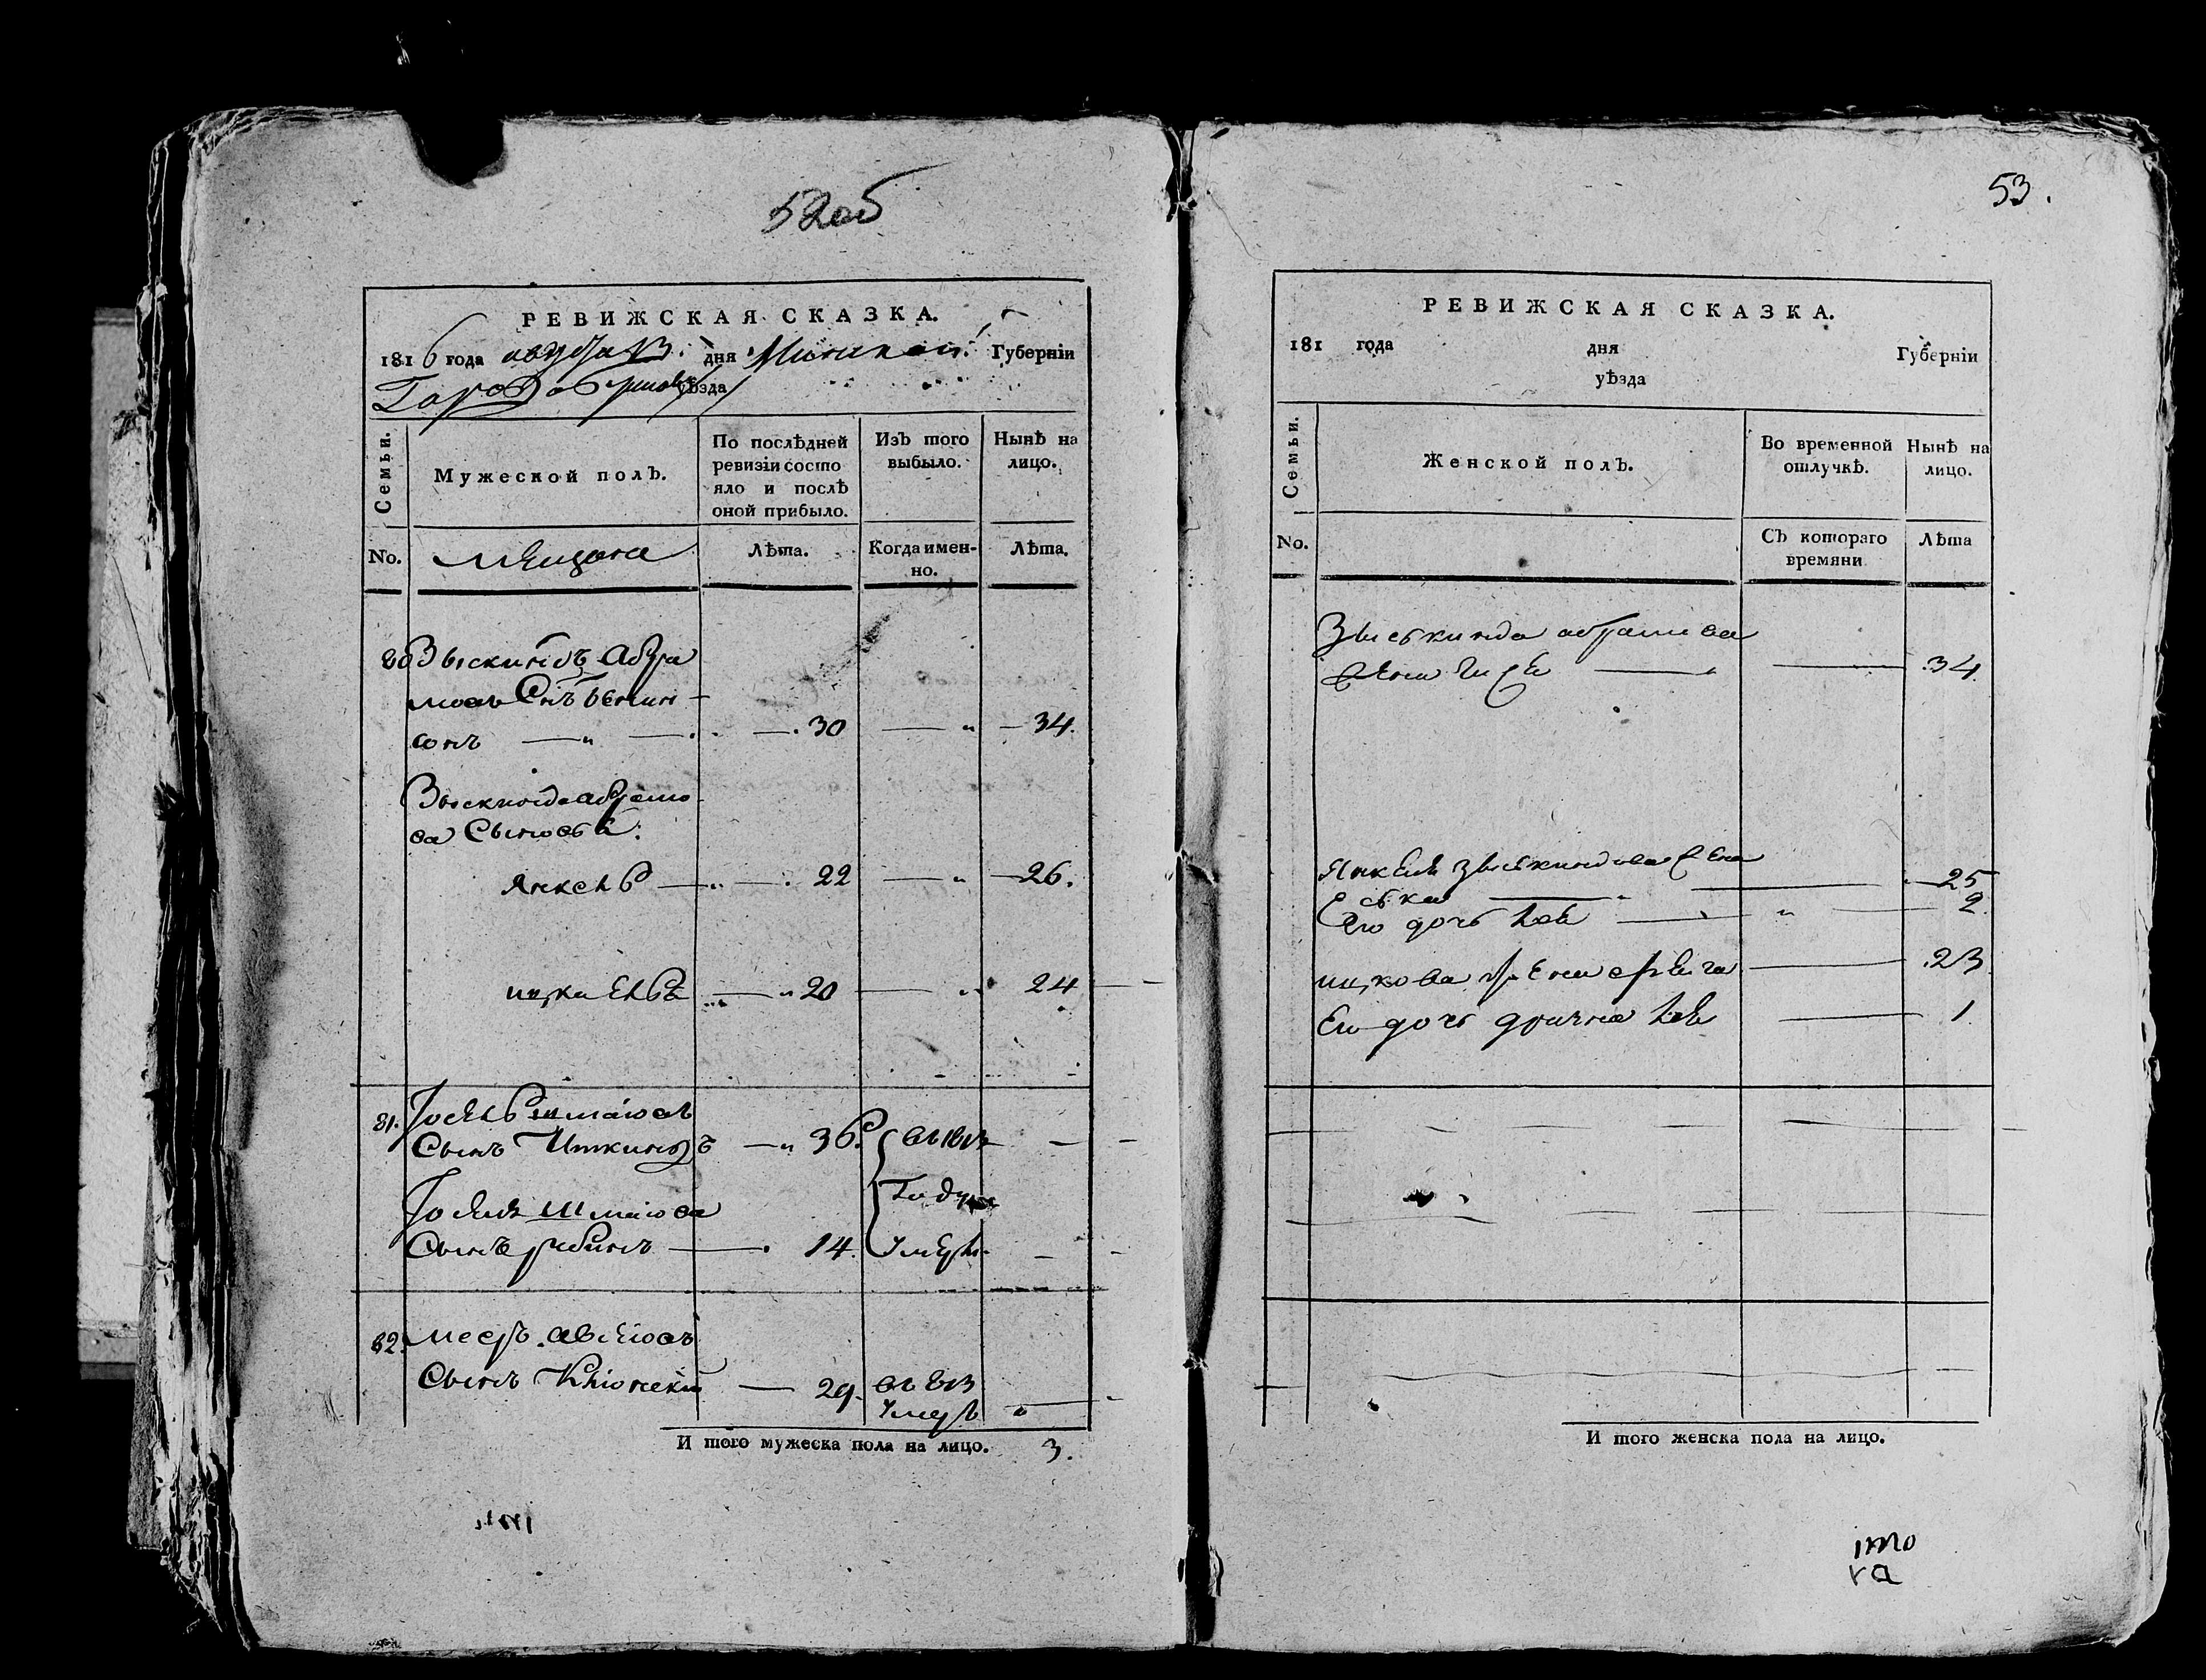 52об
РЕВИЖСКАЯ СКАЗКА.
1816 года августа 13. дня Минской Губерніи
уѣзда
Семьи.
Мужеской полъ.
По послѣдней ревизіи состояло и послѣ оной прибыло.
Изъ того выбыло.
Нынѣ на лицо.
No.
мещане
Лѣта.
Когда именно.
Лѣта.
80 Зыскиндъ Абра
мовъ Снъ
сонъ 30 34.
Зыскинда абрамо
ва Сыновья:
Янкель 22 26.
ицка 20 24
81. Іосель шмаіовъ
Сынъ Иткиндъ 36. въ 1812
Году
Іоселя шмаіова
Сынъ рубинъ 14. Умерли
82. мееръ
Сынъ 29. въ 813
Умеръ
И того мужеска пола на лицо. 3.
53.
РЕВИЖСКАЯ СКАЗКА.
181 года дня Губерніи
уѣзда
Семьи.
Женской полъ.
Во временной отлучкѣ.
Нынѣ на лицо.
No.
Съ котораго времяни
Лѣта
Зыськинда абрамова
жена 34.
Янкеля зыськиндова жена
еська 25
Его дочь хая 2.
ицкова жена 23
Его дочь 1.
И того женска пола на лицо.